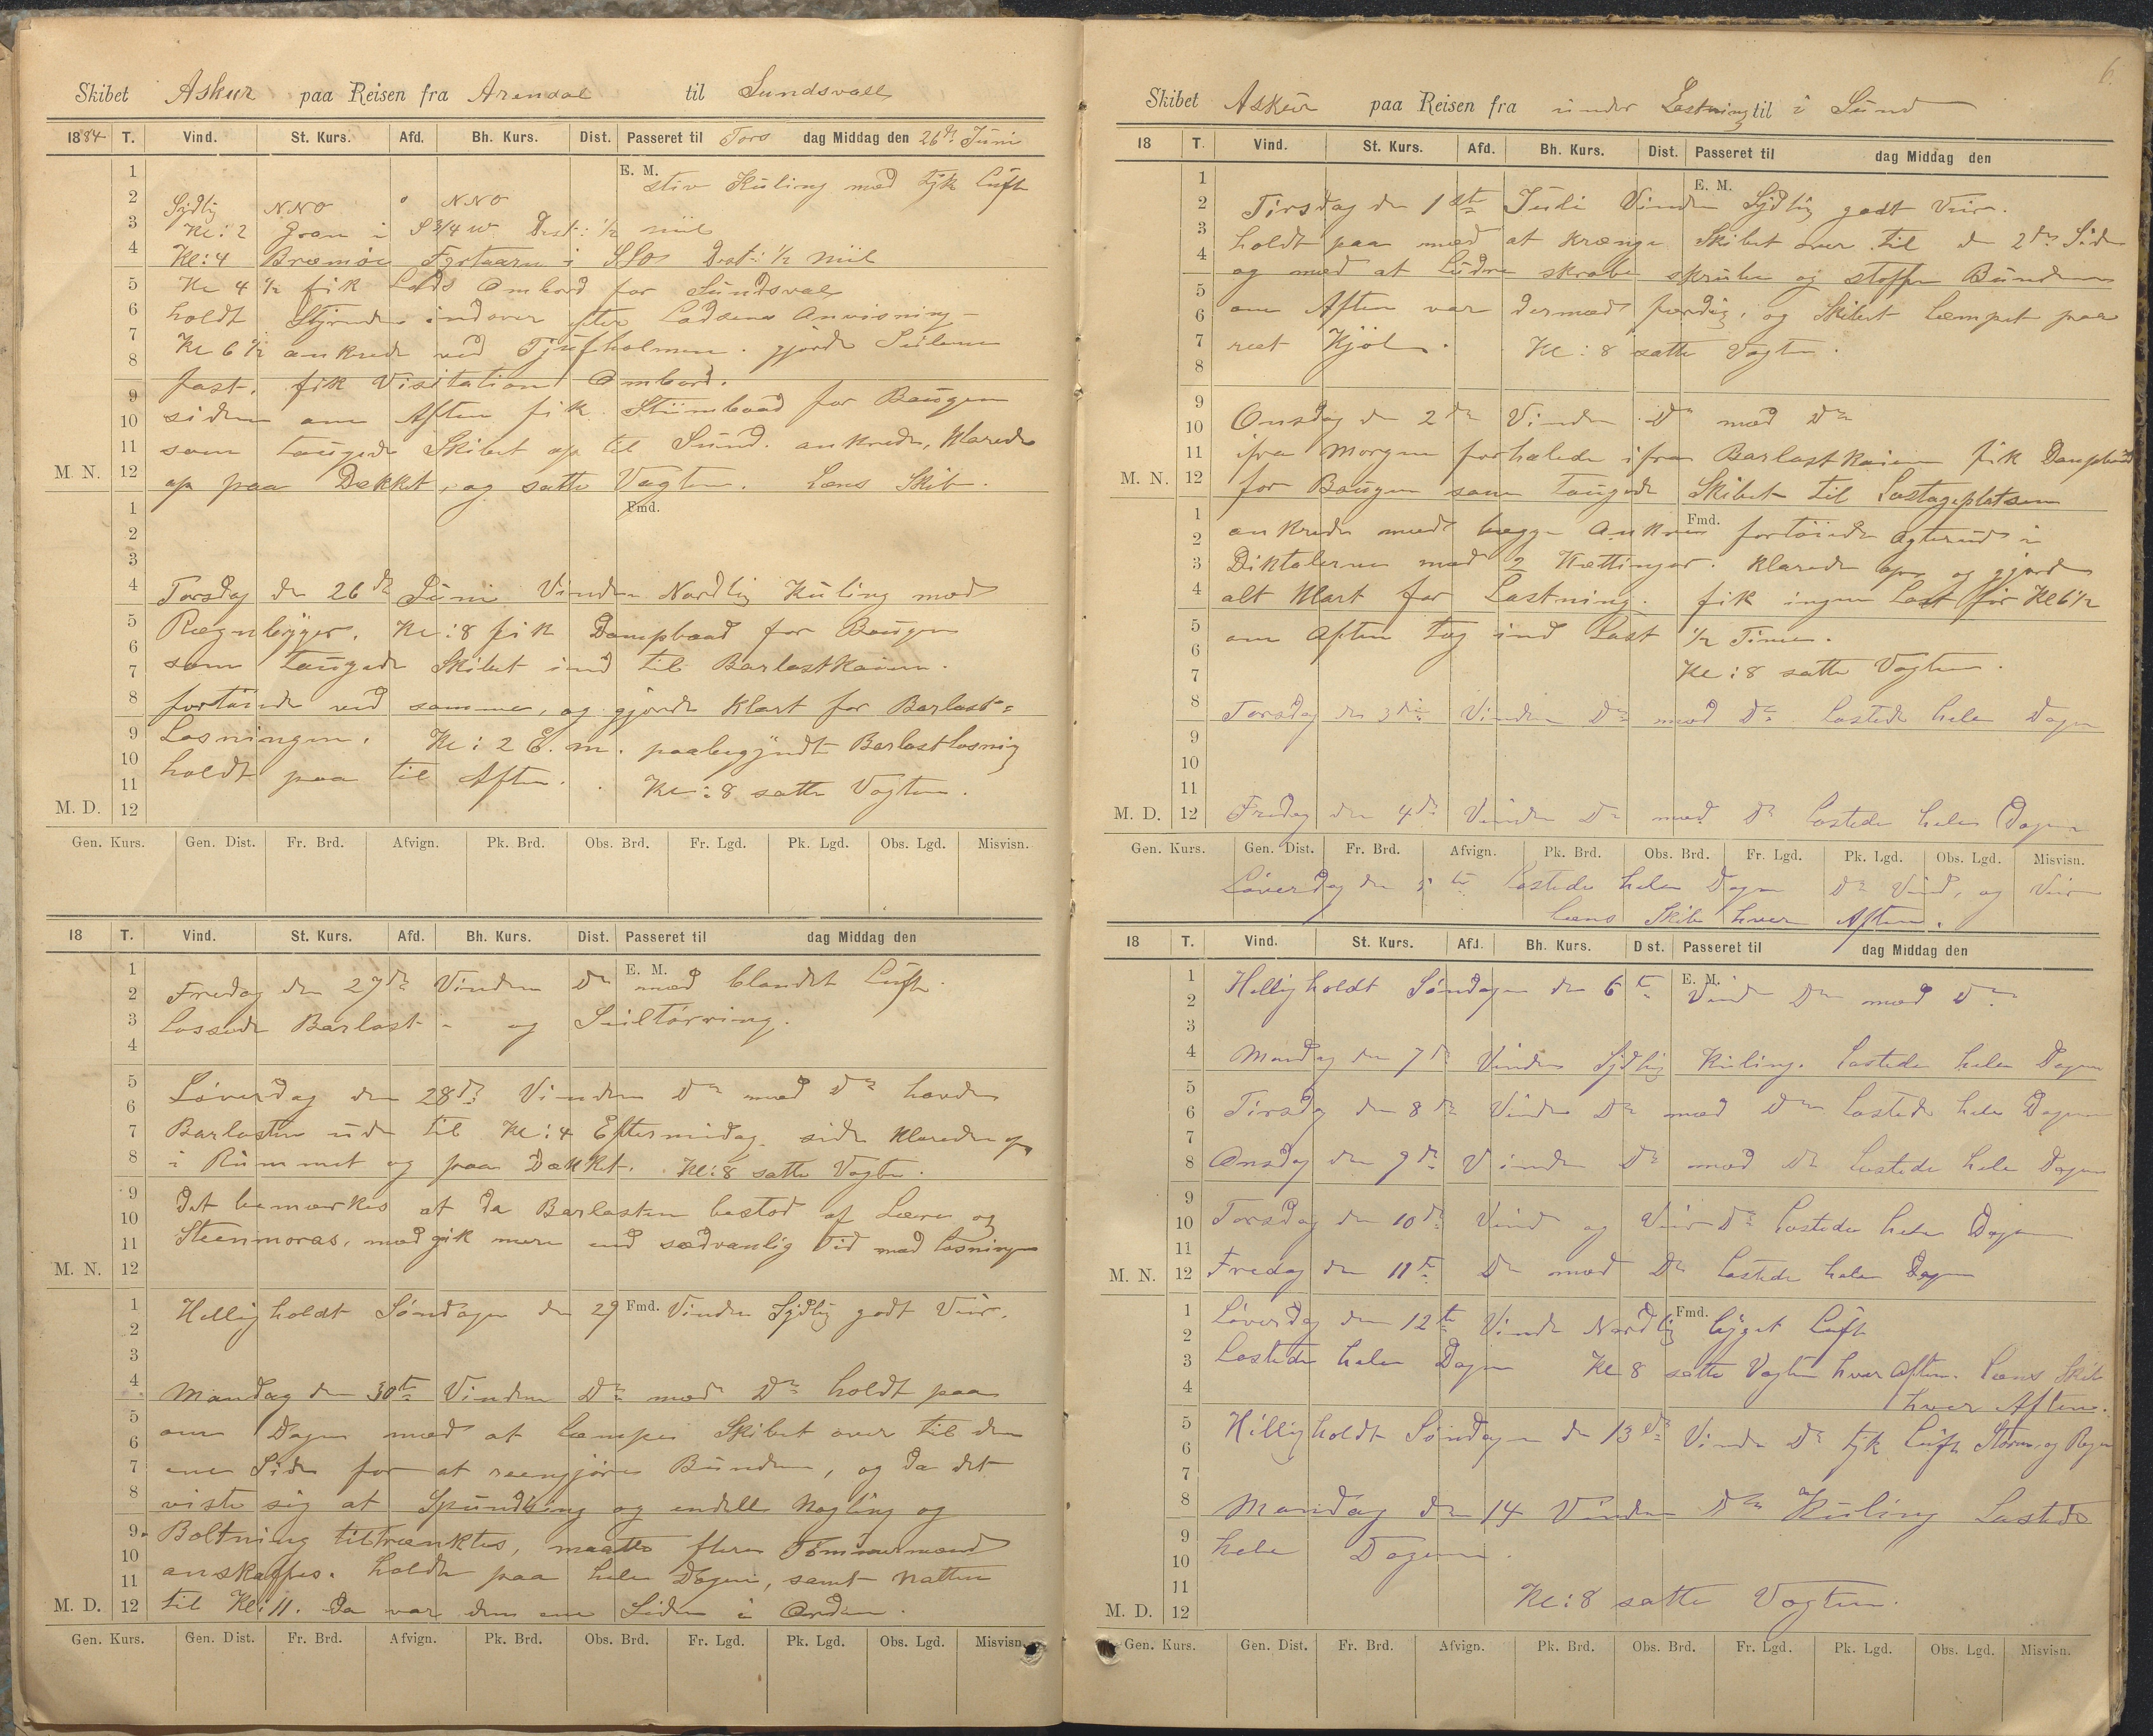 Skibet Askur paa Reisen fra Arendal til Sundsvall
1884 T. Vind. St. Kurs. Afd. Bh. Kurs. Dist. Passeret til Tors dag Middag den 26de Juni
E. M.
stiv Kuling med tyk Luft
Sydlig NNO 0 NNO
Kl: 2 Gran i S 3/4 W Dist: 1/2 Miil
Kl: 4 Bremöe Fyrtaarn i SSO Dist: 1/2 Miil
Kl 4 1/2 fik Lods Ombord for Sundsval
holdt Styrende indover efter Lodsens Anvisning
Kl 6 1/2 ankrede ved Tjufholmen. gjorde Seilene
fast, fik Visitation Ombord.
siden om Aften fik Stiimbaad for Bougen
som tougede Skibet op til Sund. ankrede, Klarede
op paa Dekket, og satte Vagten. Læns Skib.
M. N.
Fmd.
Torsdag den 26de Juni Vinden Nordlig Kuling med
Regnbyger. Kl: 8 fik Dampbaad for Bougen
som tougede Skibet ind til Barlastkaien.
fortöiede ved samme, og gjorde Klart for Barlast=
Losningen. Kl: 2 E. m. paabegyndte Barlastlosning
holdt paa til Aften. Kl: 8 satte Vagten.
M. D.
Gen. Kurs. Gen. Dist. Fr. Brd. Afvign. Pk. Brd. Obs. Brd. Fr. Lgd. Pk. Lgd. Obs. Lgd. Misvisn.
18 T. Vind. St. Kurs. Afd. Bh. Kurs. Dist. Passeret til dag Middag den
E. M.
Fredag den 27de Vinden Do med blandet Luft.
Lossede Barlast - og Seiltörring.
Löverdag den 28de Vinden Do med Do havde
Barlasten ude til Kl: 4 Eftermidag. siden Klarede op
i Rummet og paa Dækket. Kl: 8 satte Vagten.
Det bemærkes at da Barlasten bestod af Leere og
Steenmoras, medgik mere end sædvanlig Tid med losningen
M. N.
Helligholdt Söndagen den 29 Fmd. Vinden Sydlig godt Veir.
Mandag den 30te Vinden Do med Do holdt paa
om Dagen med at læmpe Skibet over til den
ene Side for at reengjöre Bunden, og da det
viste sig at Spunding og endelle Nagling og
Boltning tiltrænktes, maatte flere Tömmermænd
anskaffes. holdt paa hele Dagen, samt Natten
til Kl: 11. Da var den ene Siden i Orden.
M. D.
Gen. Kurs. Gen. Dist. Fr. Brd. Afvign. Pk. Brd. Obs. Brd. Fr. Lgd. Pk. Lgd. Obs. Lgd. Misvisn.
6.
Skibet Askur paa Reisen fra under Lastning til i Sund
18 T. Vind. St. Kurs. Afd. Bh. Kurs. Dist. Passeret til dag Middag den
E. M.
Tirsdag den 1ste Juli Vinden Sydlig godt Veir.
holdt paa med at krænge Skibet over til den 2den Side
og med at Ludre skrabe skrubbe og stoffe Bunden
om Aften var dermed færdig, og Skibet læmpet paa
ret Kjöl. Kl: 8 satte Vagten.
Onsdag den 2de Vinden Do med Do
ifra Morgen forhalede ifra Barlastkaien fik Dampbaad
for Bougen som tougede Skibet til Lastageplatsen
M. N.
Fmd.
ankrede med begge Ankrene fortöiede agterud i
Diktalerne med 2 Kættinger. Klarede op og gjorde
alt Klart for Lastning. fik ingen Last för Kl 6 1/2
om Aften tog ind Last 1/2 Time.
Kl: 8 satte Vagten.
Torsdag den 3die Vinden Do med Do lastede hele Dagen
Fredag den 4de Vinden Do med Do lastede hele Dagen
M. D.
Gen. Kurs. Gen. Dist. Fr. Brd. Afvign. Pk. Brd. Obs. Brd. Fr. Lgd. Pk. Lgd. Obs. Lgd. Misvisn.
Löverdag den 5te lastede hele Dagen Do Vind, og Veir
læns Skib hver Aften.
18 T. Vind. St. Kurs. Afd. Bh. Kurs. Dist. Passeret til dag Middag den
E. M.
Helligholdt Söndagen den 6te Vind Do med Do.
Mandag den 7de Vinden Sydlig Kuling. lastede hele Dagen
Tirsdag den 8de Vinden Do med Do lastede hele Dagen
Onsdag den 9de Vinden Do med Do lastede hele Dagen
Torsdag den 10de Vind og Veir Do lastede hele Dagen
Fredag den 11te Do med Do lastede hele Dagen
M. N.
Fmd.
Löverdag den 12te Vinden Nordlig byget Luft
lastede hele Dagen Kl 8 satte Vagten hver Aften. læns Skib
hver Aften.
Helligholdt Söndagen den 13de Vinden Do tyk Luft Storm og Regn
Mandag den 14 Vinden Do Kuling Lastede
hele Dagen.
Kl: 8 satte Vagten.
M. D.
Gen. Kurs. Gen. Dist. Fr. Brd. Afvign. Pk. Brd. Obs. Brd. Fr. Lgd. Pk. Lgd. Obs. Lgd. Misvisn.